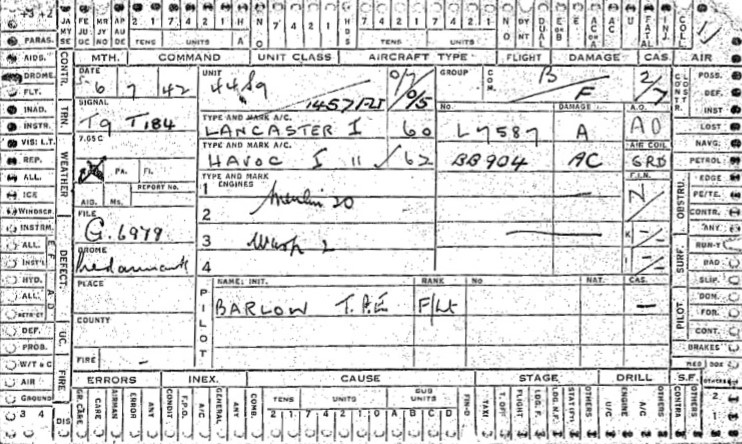 +3 +2
JA FE MR AP 2 1 7 4 H NO 7 4 2 1 7 4 2 1 HDS
MY JU JY AU
SE GC NO DE TENS UNITS A TENS UNITS
NO DY NT DUAL E OR B AC OR A AC U FATAL INJ. COLL.
PARAS. MTH. COMMAND UNIT CLASS AIRCRAFT TYPE FLIGHT DAMAGE CAS. AIR
AIDS. CONTR. DATE UNIT GROUP COM CLOSSTR. POSS.
DROME. 6 7 42 44 Sq B 2/7 DEF.
FLT. 1457 Flt F INST
INAD. TRN. SIGNAL TYPE AND MARK A/C. No. DAMAGE A.O. LOST
INSTR. T9 T184 LANCASTER I 60 L7587 A AO NAVG:
VIS: L.T. 765C TYPE AND MARK A/C. AIR COLL
REP. WEATHER HAVOC I 11 / 62 BB904 AC GRD PETROL
ALL. PA. FI. TYPE AND MARK ENGINES F.I.N. OBSTRU. EDGE
ICE AID. Ms. REPORT No. 1 N PE/TE.
WINDSCR. FILE 2 Merlin 20 CONTR.
INSTRM. G.6979 3 Wasp 2 K ANY
ALL. DEFECT. DROME 4 I SURF. RUN-Y
INST'L BAD
HYD. PLACE PILOT NAME: INIT. RANK No NAT. CAS. SLIP.
ALL. BARLOW T.P.E F/Lt — PILOT DOM.
RETRACT FOR.
DEF. UC. COUNTY CONT.
PROB. BRAKES
W/T & C FIRE FIRE - MED
AIR ERRORS INEX. CAUSE STAGE DRILL S.F.
GROUND GR. CARE CARE AIRMAN ERROR ANY CONDIT F.P.O. A/C GENERAL ANY COMB. TENS UNITS SUB UNITS FIN-D TAXI T. OFF FLIGHT LDG. F. LDG. N.F. STAT (FY) OTHERS U/C ENGINE A/C OTHERS CONTRS OTHERS
3 4 DIS 2 1 7 4 2 1 0 A B C D 2 1